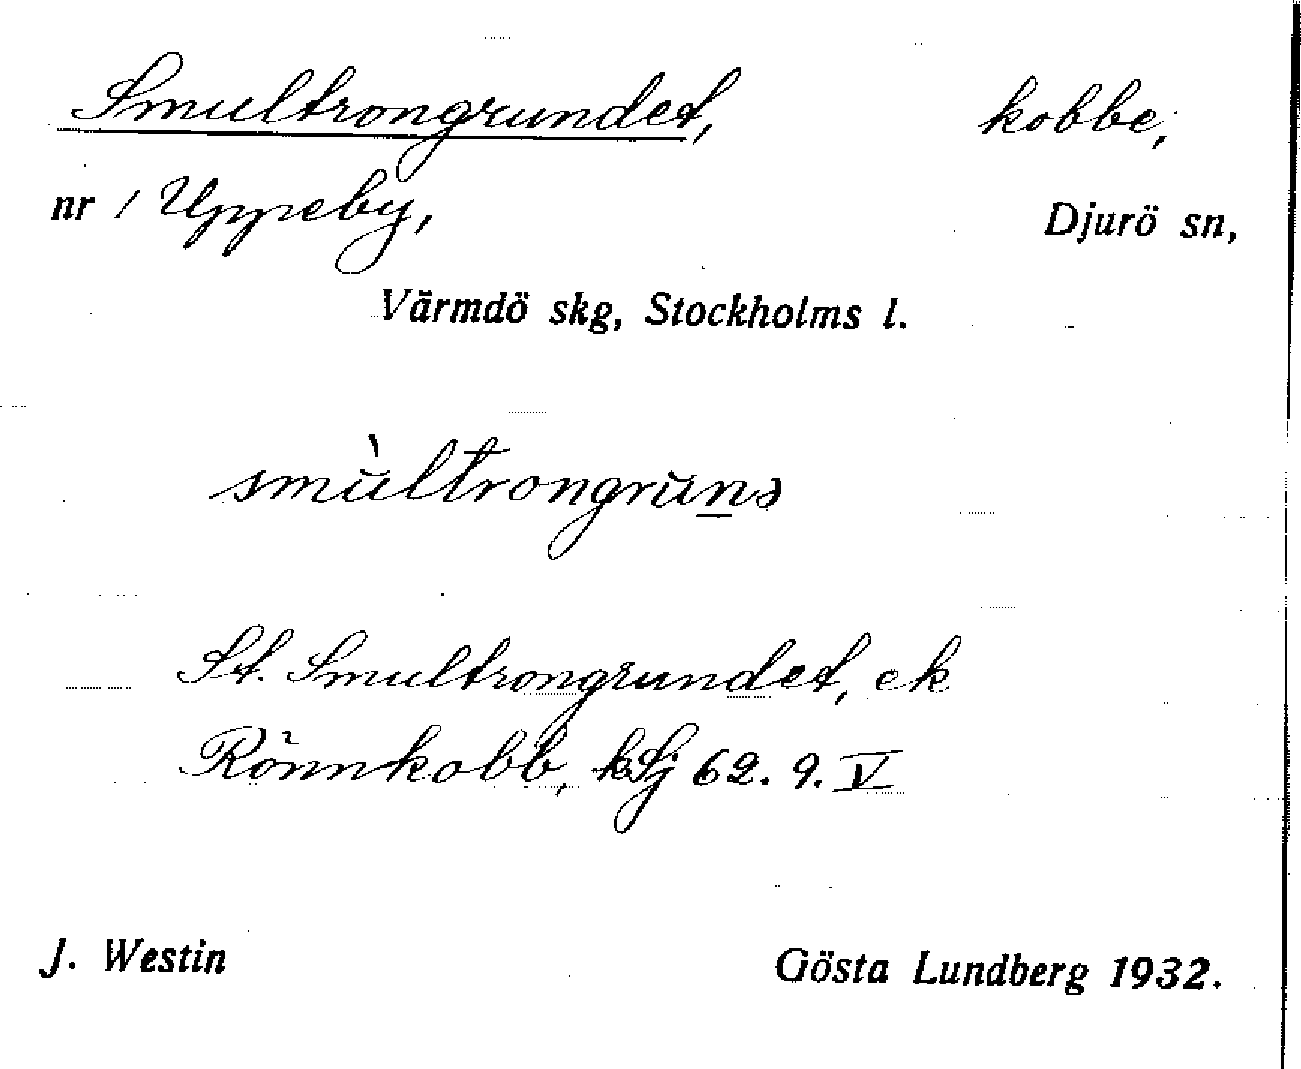 Smultrongrundet, kobbe,
nr / Uppeby, Djurö sn,
Värmdö skg, Stockholms l.
smùltrongruns
St. Smultrongrundet, ek
Rönnkobb, kSj 62. 9. V
J. Westin Gösta Lundberg 1932.